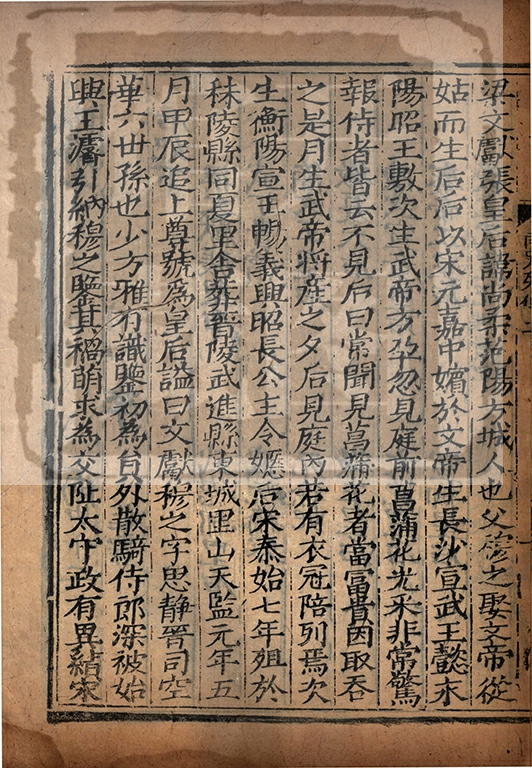 梁文獻張皇后諱尚柔范陽方城人也父穆之娶文帝從
姑而生后后以宋元嘉中嬪於文帝生長沙宣武王懿永
陽昭王敷次生武帝方孕忽見庭前菖蒲花光采非常驚
報侍者皆云不見后曰常聞見菖蒲花者當富貴因取吞
之是月生武帝將產之夕后見庭內若有衣冠陪列焉次
生衡陽宣王暢義興昭長公主令嫕后宋泰始七年殂於
秣陵縣同夏里舍葬晉陵武進縣東城里山天監元年五
月甲辰追上尊號為皇后謚曰文獻穆之字思靜晉司空
華六世孫也少方雅有識鑒初為員外散騎侍郎深被始
興王濬引納穆之鑒其禍萌求為交阯太守政有異績宋